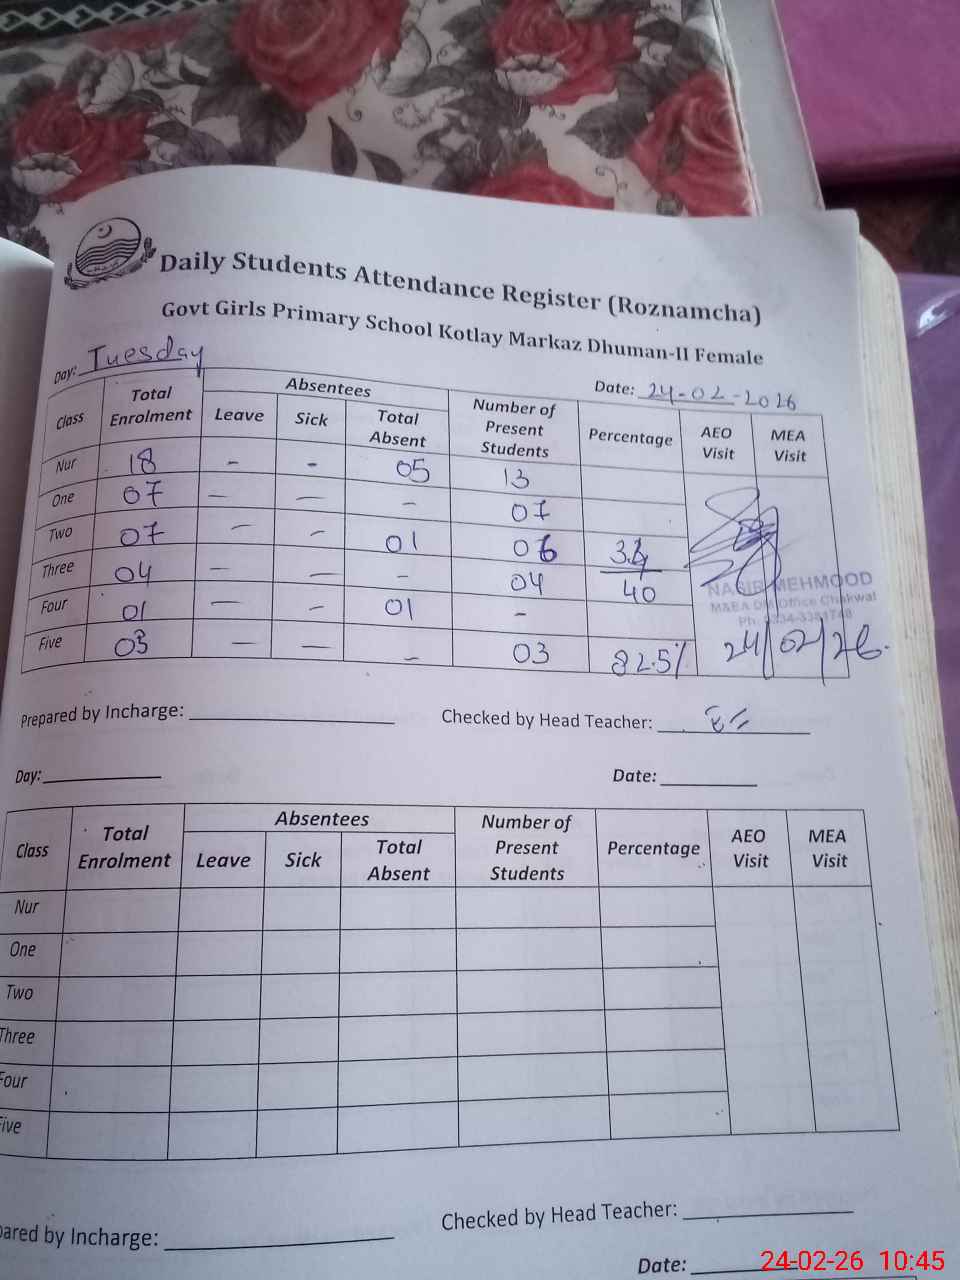 Daily Students Attendance Register (Roznamcha)
Govt Girls Primary School Kotlay Markaz Dhuman-II Female
Day: Tuesday Date: 24-02-2026
Class Total Enrolment Absentees Leave Sick Total Absent Number of Present Students Percentage AEO Visit MEA Visit
Nur 18 - - 05 13
One 07 - - - 07
Two 07 - - 01 06
Three 04 - - - 04 40
Four 01 - - 01 -
Five 03 - - - 03 82.5%
NASIR MEHMOOD
M&EA Office Chakwal
24/02/26.
Prepared by Incharge: Checked by Head Teacher:
Day: Date:
Class Total Enrolment Absentees Leave Sick Total Absent Number of Present Students Percentage AEO Visit MEA Visit
Nur
One
Two
Three
Four
Five
by Incharge: Checked by Head Teacher:
Date:
24-02-26 10:45